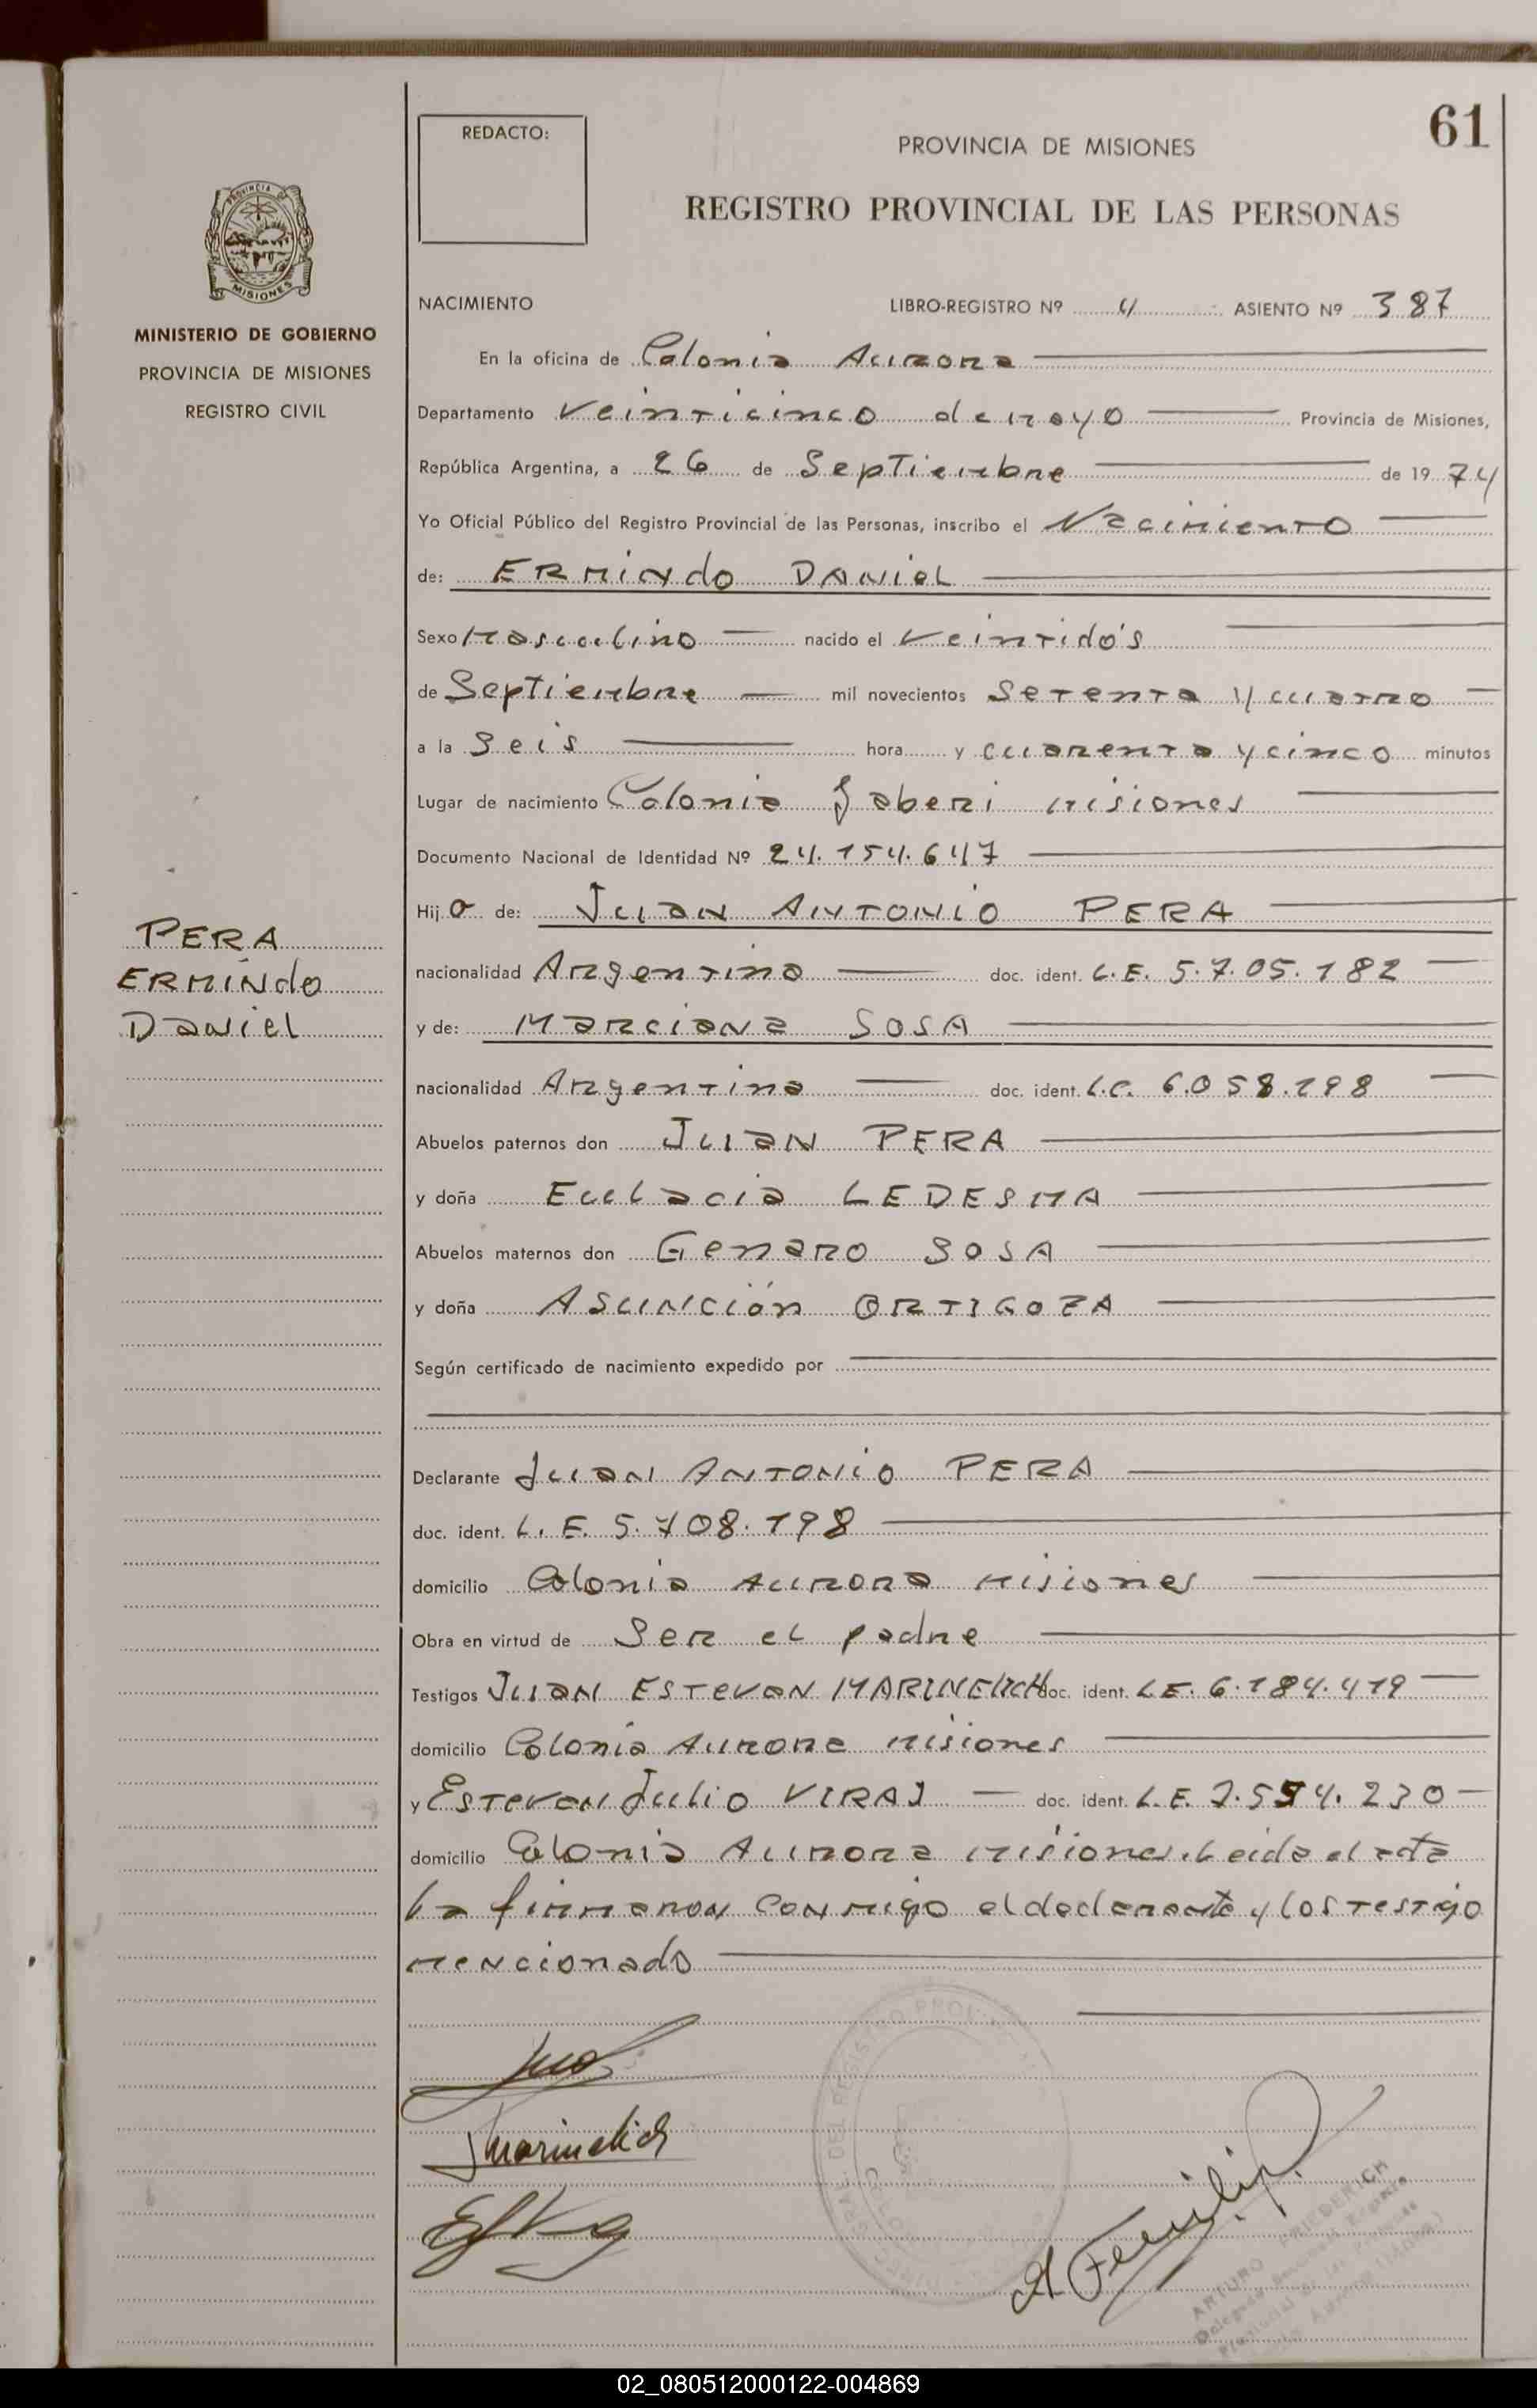 61
REDACTO:
PROVINCIA DE MISIONES
REGISTRO PROVINCIAL DE LAS PERSONAS
PROVINCIA DE
MISIONES
MINISTERIO DE GOBIERNO
PROVINCIA DE MISIONES
REGISTRO CIVIL
NACIMIENTO LIBRO-REGISTRO Nº 4 ASIENTO Nº 387
En la oficina de Colonia Aurora
Departamento Veinticinco de mayo Provincia de Misiones,
República Argentina, a 26 de Septiembre de 1974
Yo Oficial Público del Registro Provincial de las Personas, inscribo el Nacimiento
de: ERMINdo DANieL
Sexo Masculino nacido el Veintidós
de Septiembre mil novecientos Setenta y cuatro
a la Seis hora y cuarenta y cinco minutos
Lugar de nacimiento Colonia Saberi misiones
Documento Nacional de Identidad Nº 24.154.647
Hijo de: JUAN ANTONIO PERA
nacionalidad Argentino doc. ident. L.E. 5.7.05.182
y de: MARCIANA SOSA
nacionalidad Argentina doc. ident. L.C. 6.058.198
Abuelos paternos don JUAN PERA
y doña Eulacia LEDESMA
Abuelos maternos don Genaro SOSA
y doña ASUNCión ORTIGOZA
Según certificado de nacimiento expedido por
Declarante JUAN ANTONIO PERA
doc. ident. L.E. 5.708.198
domicilio Colonia Aurora misiones
Obra en virtud de Ser el padre
Testigos JUAN ESTEVAN MARINELICH doc. ident. L.E. 6.184.419
domicilio Colonia Aurora misiones
y Estevan Julio VIRAJ doc. ident. L.E. 7.554.230
domicilio Colonia Aurora misiones. Leida el acta
la firmaron conmigo el declarante y los testigo
mencionado
PERA
ERMINdo
Daniel
Jmarinelich
ARTURO FRIEDERICH
02_080512000122-004869